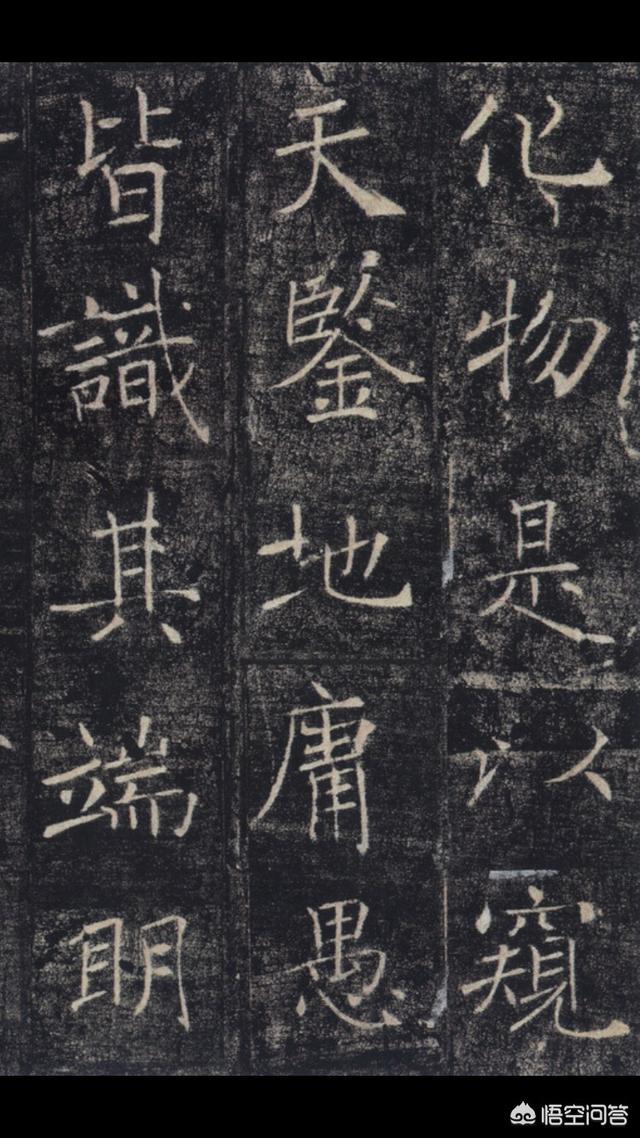 化物是以窺
天鑒地庸愚
皆識其端明
悟空问答